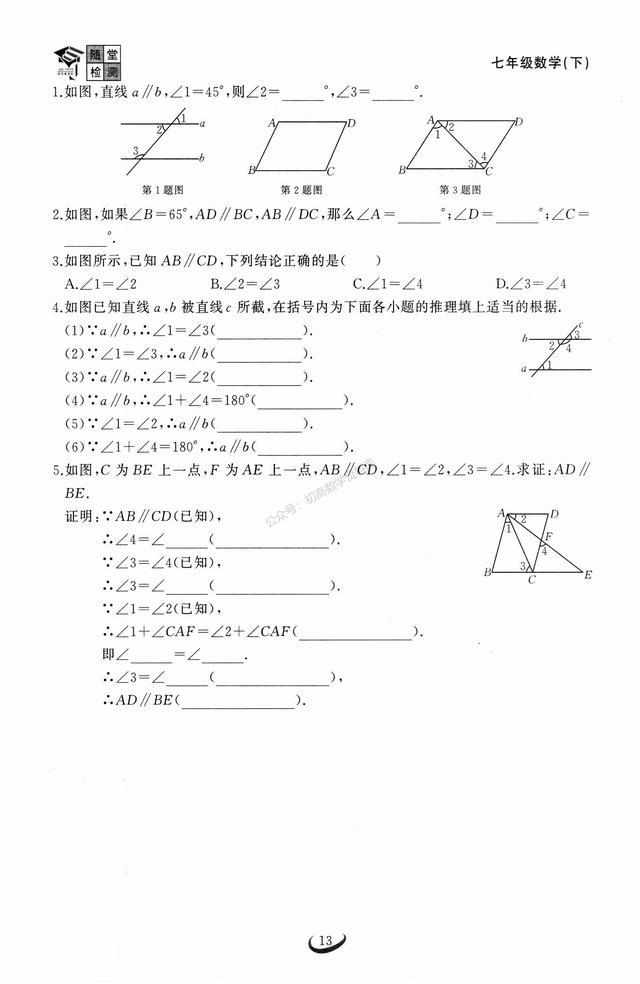 随堂
检测
七年级数学(下)
1.如图,直线 a∥b,∠1=45°,则∠2=______°,∠3=______°.
1
2
a
3
b
第1题图
A
D
B
C
第2题图
A
2
D
1
4
3
B
C
第3题图
2.如图,如果∠B=65°,AD∥BC,AB∥DC,那么∠A=______°;∠D=______°;∠C=
______°.
3.如图所示,已知 AB∥CD,下列结论正确的是( )
A.∠1=∠2 B.∠2=∠3 C.∠1=∠4 D.∠3=∠4
4.如图已知直线 a,b 被直线 c 所截,在括号内为下面各小题的推理填上适当的根据.
(1)∵a∥b,∴∠1=∠3(____________).
(2)∵∠1=∠3,∴a∥b(____________).
(3)∵a∥b,∴∠1=∠2(____________).
(4)∵a∥b,∴∠1+∠4=180°(____________).
(5)∵∠1=∠2,∴a∥b(____________).
(6)∵∠1+∠4=180°,∴a∥b(____________).
c
b
3
2
4
a
1
5.如图,C 为 BE 上一点,F 为 AE 上一点,AB∥CD,∠1=∠2,∠3=∠4.求证:AD∥
BE.
证明:∵AB∥CD(已知),
∴∠4=∠______(________________).
∵∠3=∠4(已知),
∴∠3=∠______(________________).
∵∠1=∠2(已知),
∴∠1+∠CAF=∠2+∠CAF(________________).
即∠______=∠______.
∴∠3=∠______(________________),
∴AD∥BE(________________).
A
2
D
1
F
4
3
B
C
E
公众号:初高数学资料库
13